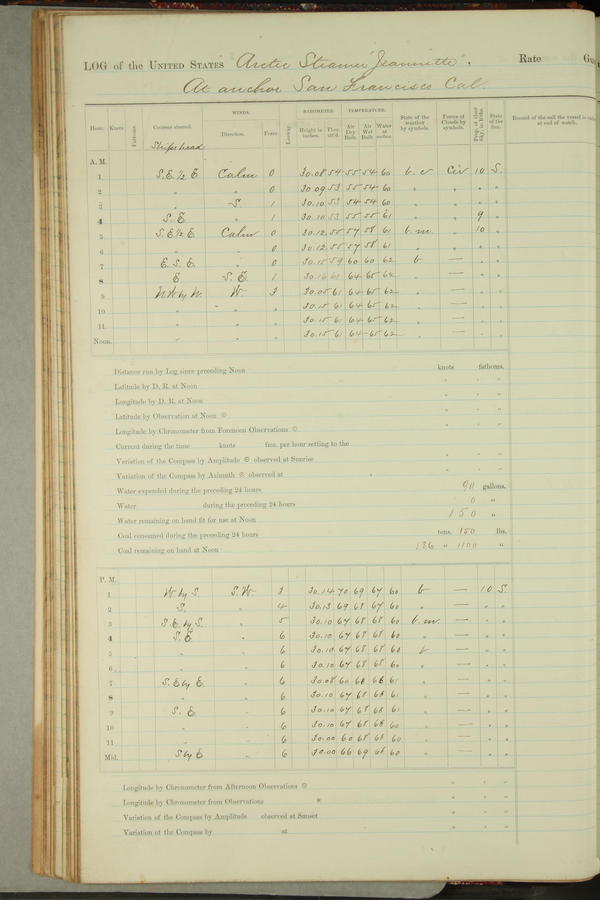 LOG of the UNITED STATES Arctic Steamer "Jeannette". Rate
At anchor San Francisco Cal.
Hour. Knots. Fathoms. Courses steered. WINDS. Direction. Force. Leeway. BAROMETER. Height in inches. Ther. att'd. TEMPERATURE. Air Dry Bulb. Air Wet Bulb. Water at surface. State of the weather by symbols. Forms of Clouds by symbols. Prop. of clear sky, in 10ths. State of the Sea. Record of the sail the vessel is under at end of watch.
Ships head
A. M.
1 S.E. ½ E Calm 0 30.08 54 55 54 60 b. c Cir 10 S.
2 " " 0 30.09 53 55 54 60 " " " "
3 " S 1 30.10 53 54 54 60 " " " "
4 S. E " 1 30.10 53 55 55 61 " " 9 "
5 S.E ½ E Calm 0 30.12 55 57 58 61 b. m. " 10 "
6 0 30.12 55 57 58 61 " " " "
7 E. S. E. " 0 30.15 59 60 60 62 b — " "
8 E S. E. 1 30.16 61 64 65 62 " — " "
9 N.W by W. W. 3 30.05 61 64 65 62 " — " "
10 " " " " 30.15 61 64 65 62 " — " "
11 " " " 30.15 61 64 65 62 " — " "
Noon. " " " 30.15 61 64 65 62 " — " "
Distance run by Log since preceding Noon knots fathoms.
Latitude by D. R. at Noon " " "
Longitude by D. R. at Noon " " "
Latitude by Observation at Noon ☉ " " "
Longitude by Chronometer from Forenoon Observations ☉ " " "
Current during the time knots fms. per hour setting to the
Variation of the Compass by Amplitude ☉ observed at Sunrise " " "
Variation of the Compass by Azimuth ☉ observed at " " "
Water expended during the preceding 24 hours 90 gallons.
Water during the preceding 24 hours 0 "
Water remaining on hand fit for use at Noon 150 "
Coal consumed during the preceding 24 hours tons. 150 lbs.
Coal remaining on hand at Noon 136 " 1100 "
P. M.
1 W. by S. S. W. 3 30.14 70 69 67 60 b — 10 S.
2 S. " 4 30.13 69 68 67 60 " — " "
3 S.E. by S. " 5 30.10 67 68 68 60 b. m. — " "
4 S. E. " 6 30.10 67 68 68 60 " — " "
5 " " 6 30.10 67 68 68 60 b — " "
6 " " 6 30.10 67 68 68 60 " — " "
7 S. E by E. " 6 30.08 60 68 68 61 " — " "
8 " " 6 30.10 67 68 68 61 " — " "
9 S. E. " 6 30.10 67 68 68 61 " — " "
10 " " 6 30.10 67 68 68 60 " — " "
11 " " 6 30.00 60 68 68 60 " — " "
Mid. S by E " 6 30.00 66 69 68 60 " — " "
Longitude by Chronometer from Afternoon Observations ☉ " " "
Longitude by Chronometer from Observations * " " "
Variation of the Compass by Amplitude observed at Sunset " " "
Variation of the Compass by at " " "